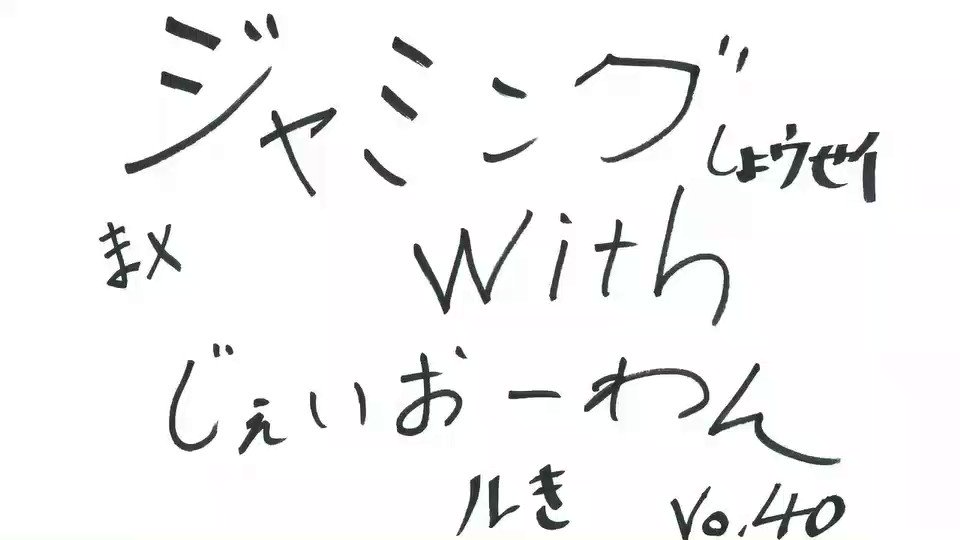 ジャミング
しょウせイ
まメ
With
じぇいおーわん
ルき
Vo.40